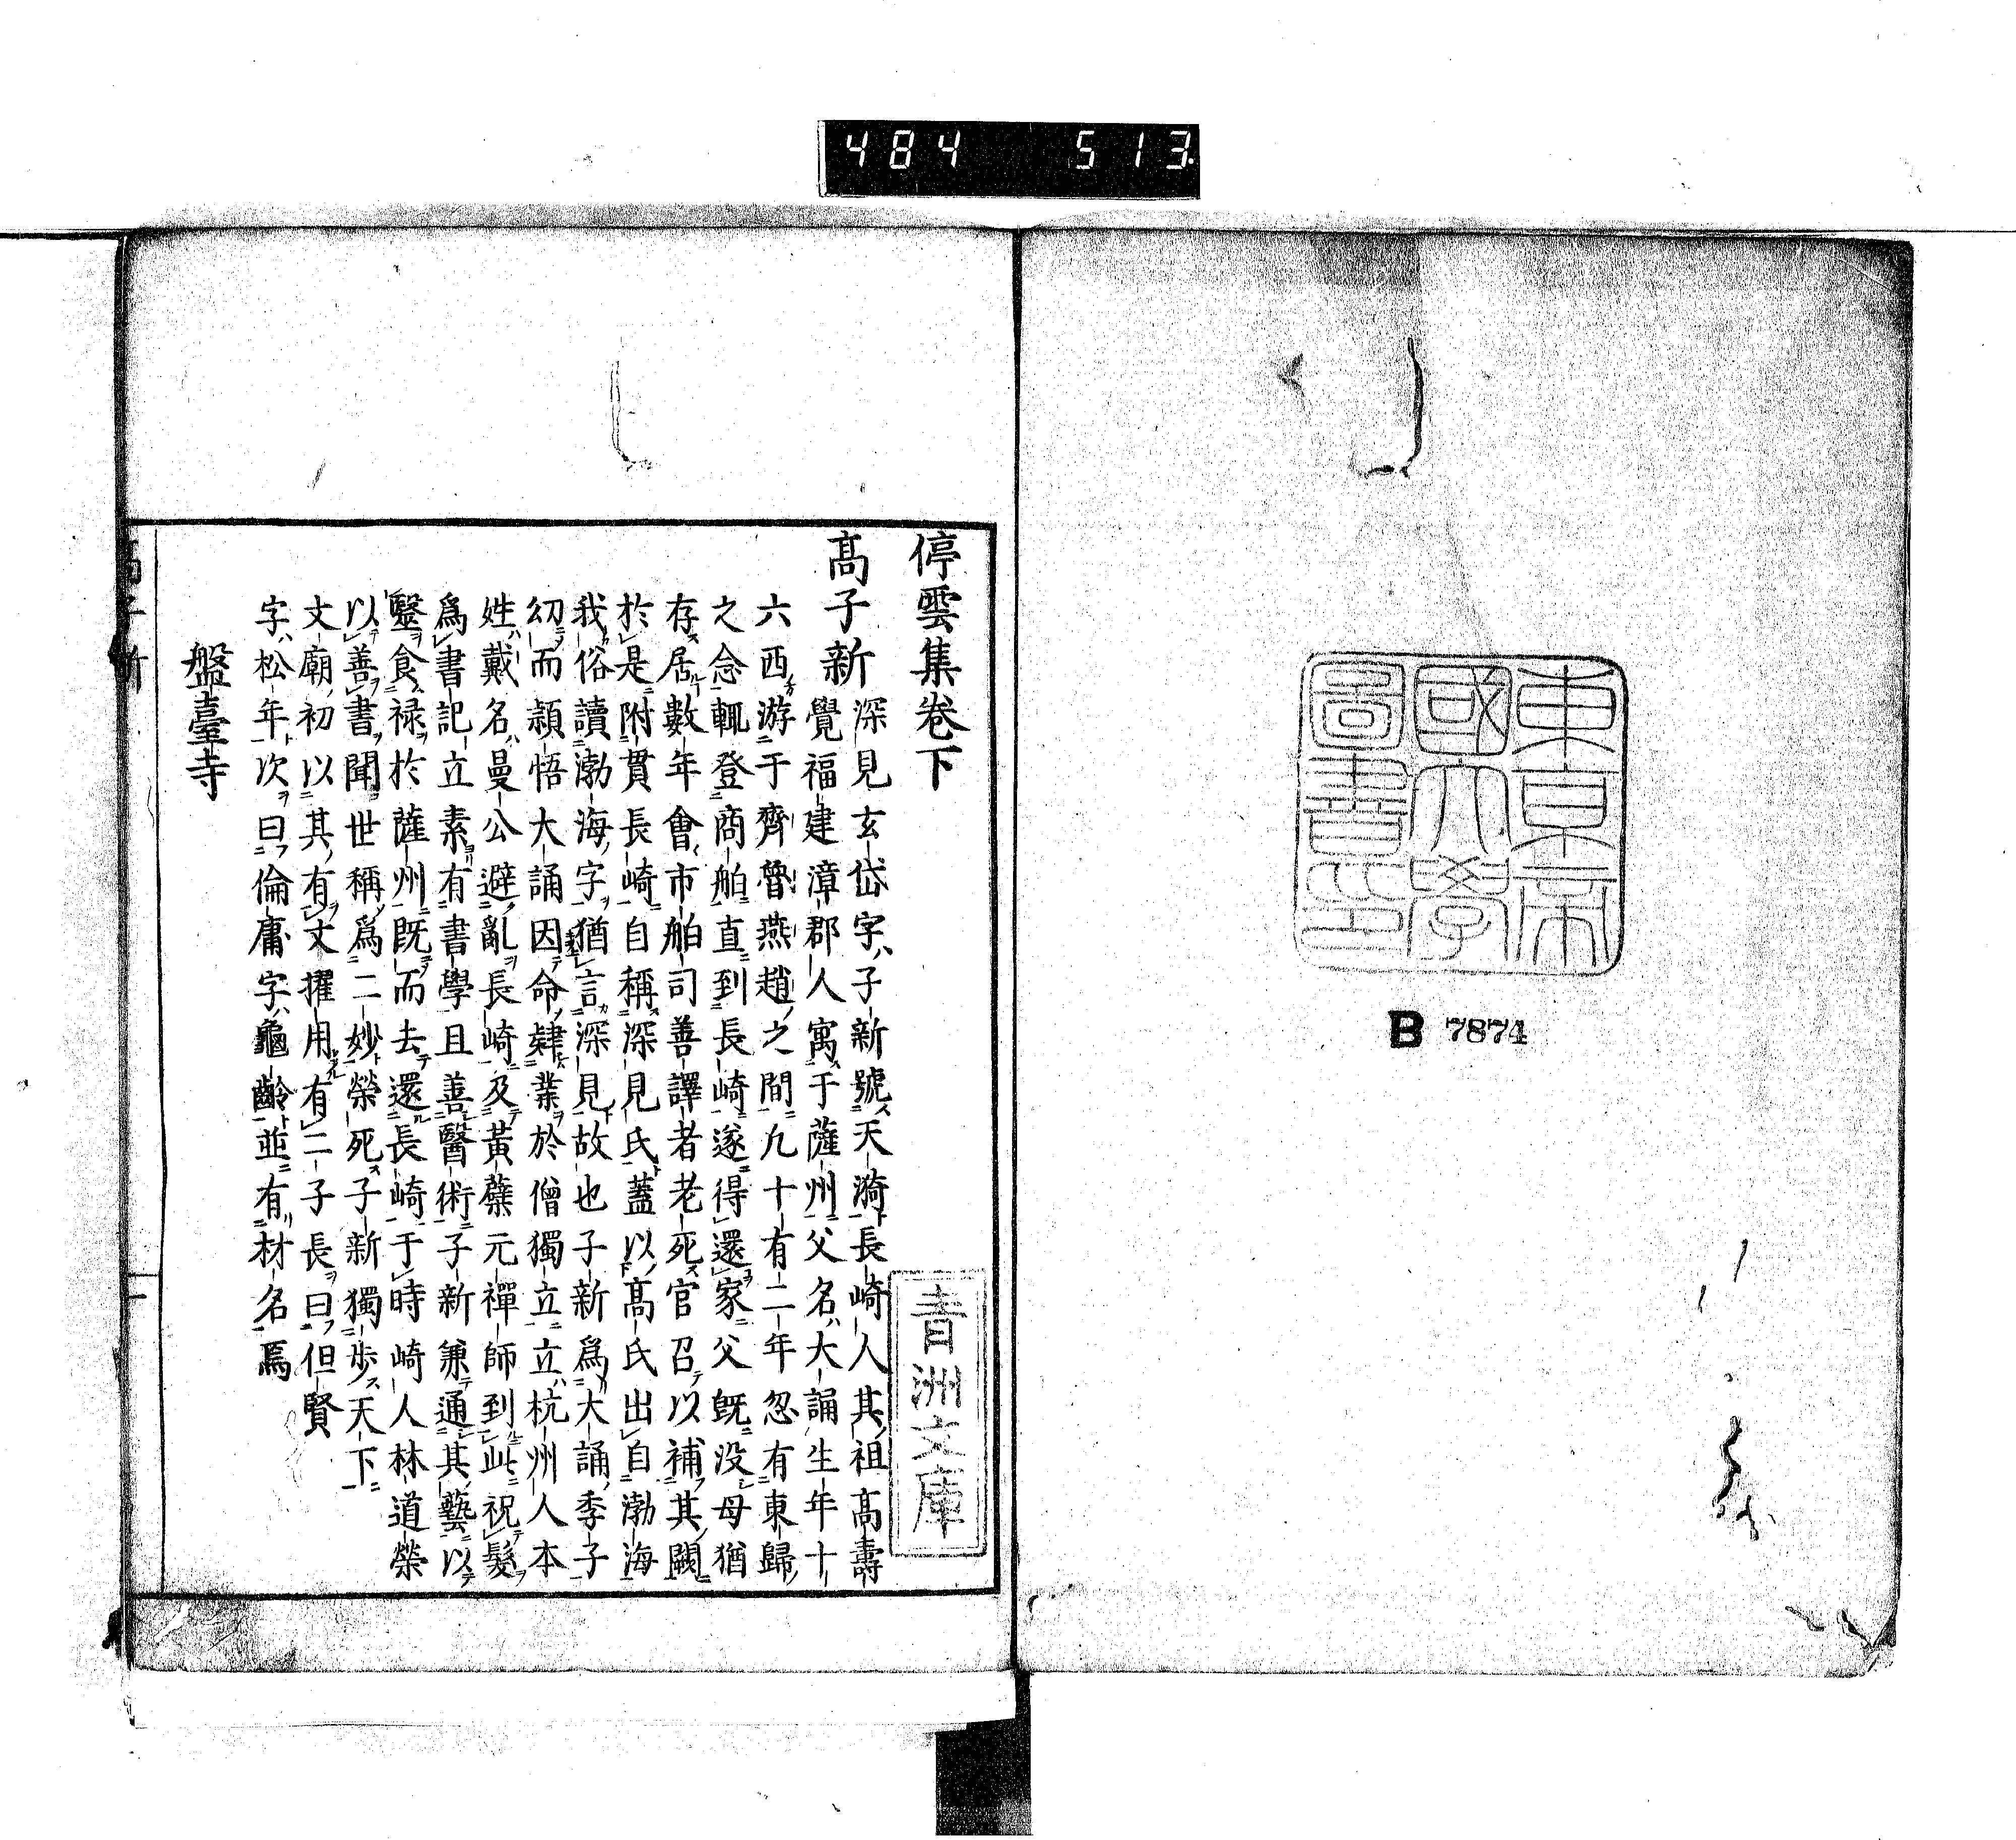 484 513
東京帝
國大學
圖書印
B 7874
青洲文庫
停雲集卷下
高子新
深見玄岱字子新號天漪長崎人其祖高壽
覺福建漳郡人寓于薩州父名大誦生年十
六西游于齊魯燕趙之間凢十有二年忽有東歸
之念輒登商舶直到長崎遂得還家父既没母猶
存居數年會市舶司善譯者老死官召以補其闕
於是附貫長崎自稱深見氏蓋以高氏出自渤海
我俗讀渤海字猶言深見故也子新爲大誦季子
幼而頴悟大誦因命肄業於僧獨立立杭州人本
姓戴名曼公避亂長崎及黃蘗元禪師到此祝髮
爲書記立素有書學且善醫術子新兼通其藝以
毉食禄於薩州既而去還長崎于時崎人林道榮
以善書聞世稱爲二妙榮死子新獨步天下
文廟初以其有文擢用有二子長曰但賢
字松年次曰倫庸字龜齡並有材名焉
盤臺寺
高子新
一